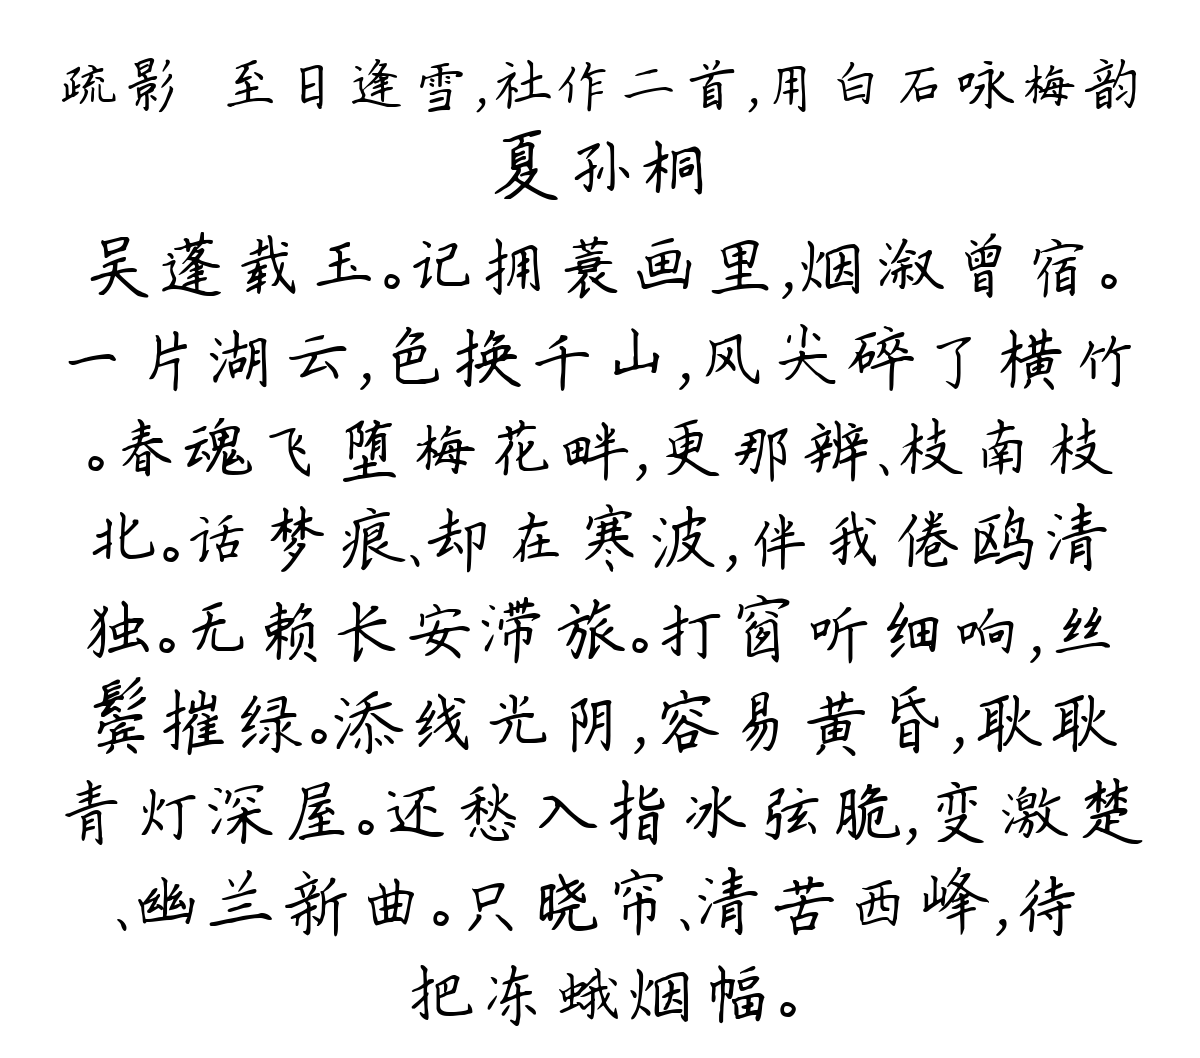 疏影 至日逢雪,社作二首,用白石咏梅韵
夏孙桐
吴蓬载玉。记拥蓑画里,烟溆曾宿。
一片湖云,色换千山,风尖碎了横竹
。春魂飞堕梅花畔,更那辨、枝南枝
北。话梦痕、却在寒波,伴我倦鸥清
独。无赖长安滞旅。打窗听细响,丝
鬓摧绿。添线光阴,容易黄昏,耿耿
青灯深屋。还愁入指冰弦脆,变激楚
、幽兰新曲。只晓帘、清苦西峰,待
把冻蛾烟幅。